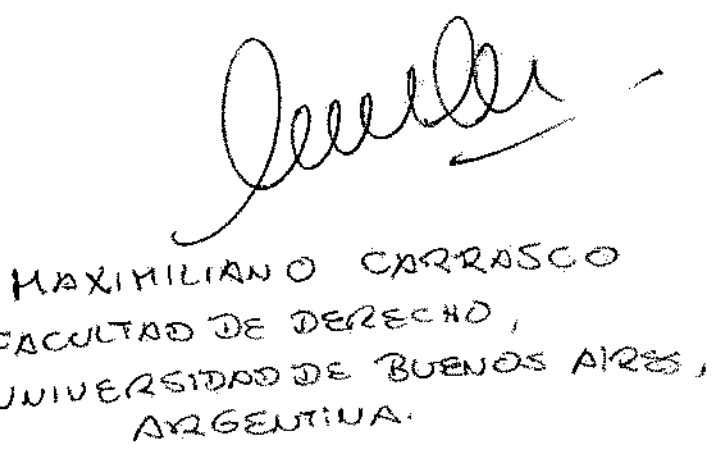 MAXIMILIANO CARRASCO
FACULTAD DE DERECHO,
UNIVERSIDAD DE BUENOS AIRES,
ARGENTINA.